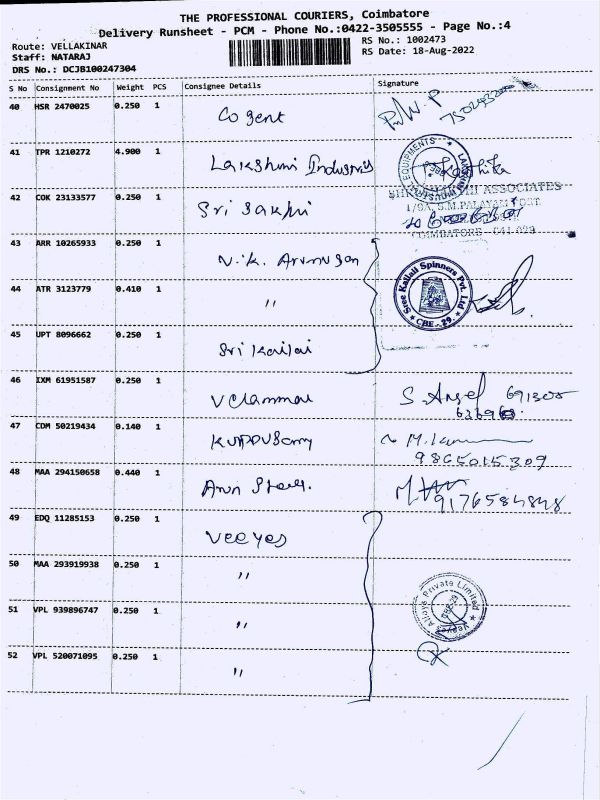 THE PROFESSIONAL COURIERS, Coimbatore
Delivery Runsheet - PCM - Phone No.:0422-3505555 - Page No.:4
Route: VELLAKINAR RS No.: 1002473
Staff: NATARAJ RS Date: 18-Aug-2022
DRS No.: DCJB100247304
S No Consignment No Weight PCS Consignee Details Signature
40 HSR 2470025 0.250 1 Cogent
41 TPR 1210272 4.900 1 Lakshmi Industries Karthika
EQUIPMENTS
42 COK 23133577 0.250 1 Sri Sakthi
ASSOCIATES
S.M.PALAYAM POST
COIMBATORE - 641 029
43 ARR 10265933 0.250 1 N.K. Arumugan
44 ATR 3123779 0.410 1 "
Sree Kailali Spinners Pvt. Ltd
CBE - 29.
45 UPT 8096662 0.250 1 Sri Kailai
46 IXM 61951587 0.250 1 Velammal
47 CDM 50219434 0.140 1 Kuppusamy
9865015309
48 MAA 294150658 0.440 1 Arun Steel.
9176584848
49 EDQ 11285153 0.250 1 Veeyes
50 MAA 293919938 0.250 1 "
51 VPL 939896747 0.250 1 "
Veeyes Alloys Private Limited
52 VPL 520071095 0.250 1 "